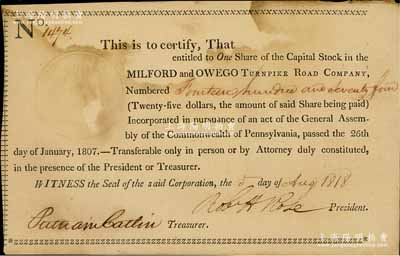 No 1474
This is to certify, That
entitled to One Share of the Capital Stock in the
MILFORD and OWEGO TURNPIKE ROAD COMPANY,
Numbered Fourteen hundred and seventy four
(Twenty-five dollars, the amount of said Share being paid)
Incorporated in pursuance of an act of the General Assem-
bly of the Commonwealth of Pennsylvania, passed the 26th
day of January, 1807.—Transferable only in person or by Attorney duly constituted,
in the presence of the President or Treasurer.
WITNESS the Seal of the said Corporation, the 5 day of Aug 1818
Robt H Rose President.
Putnam Catlin Treasurer.